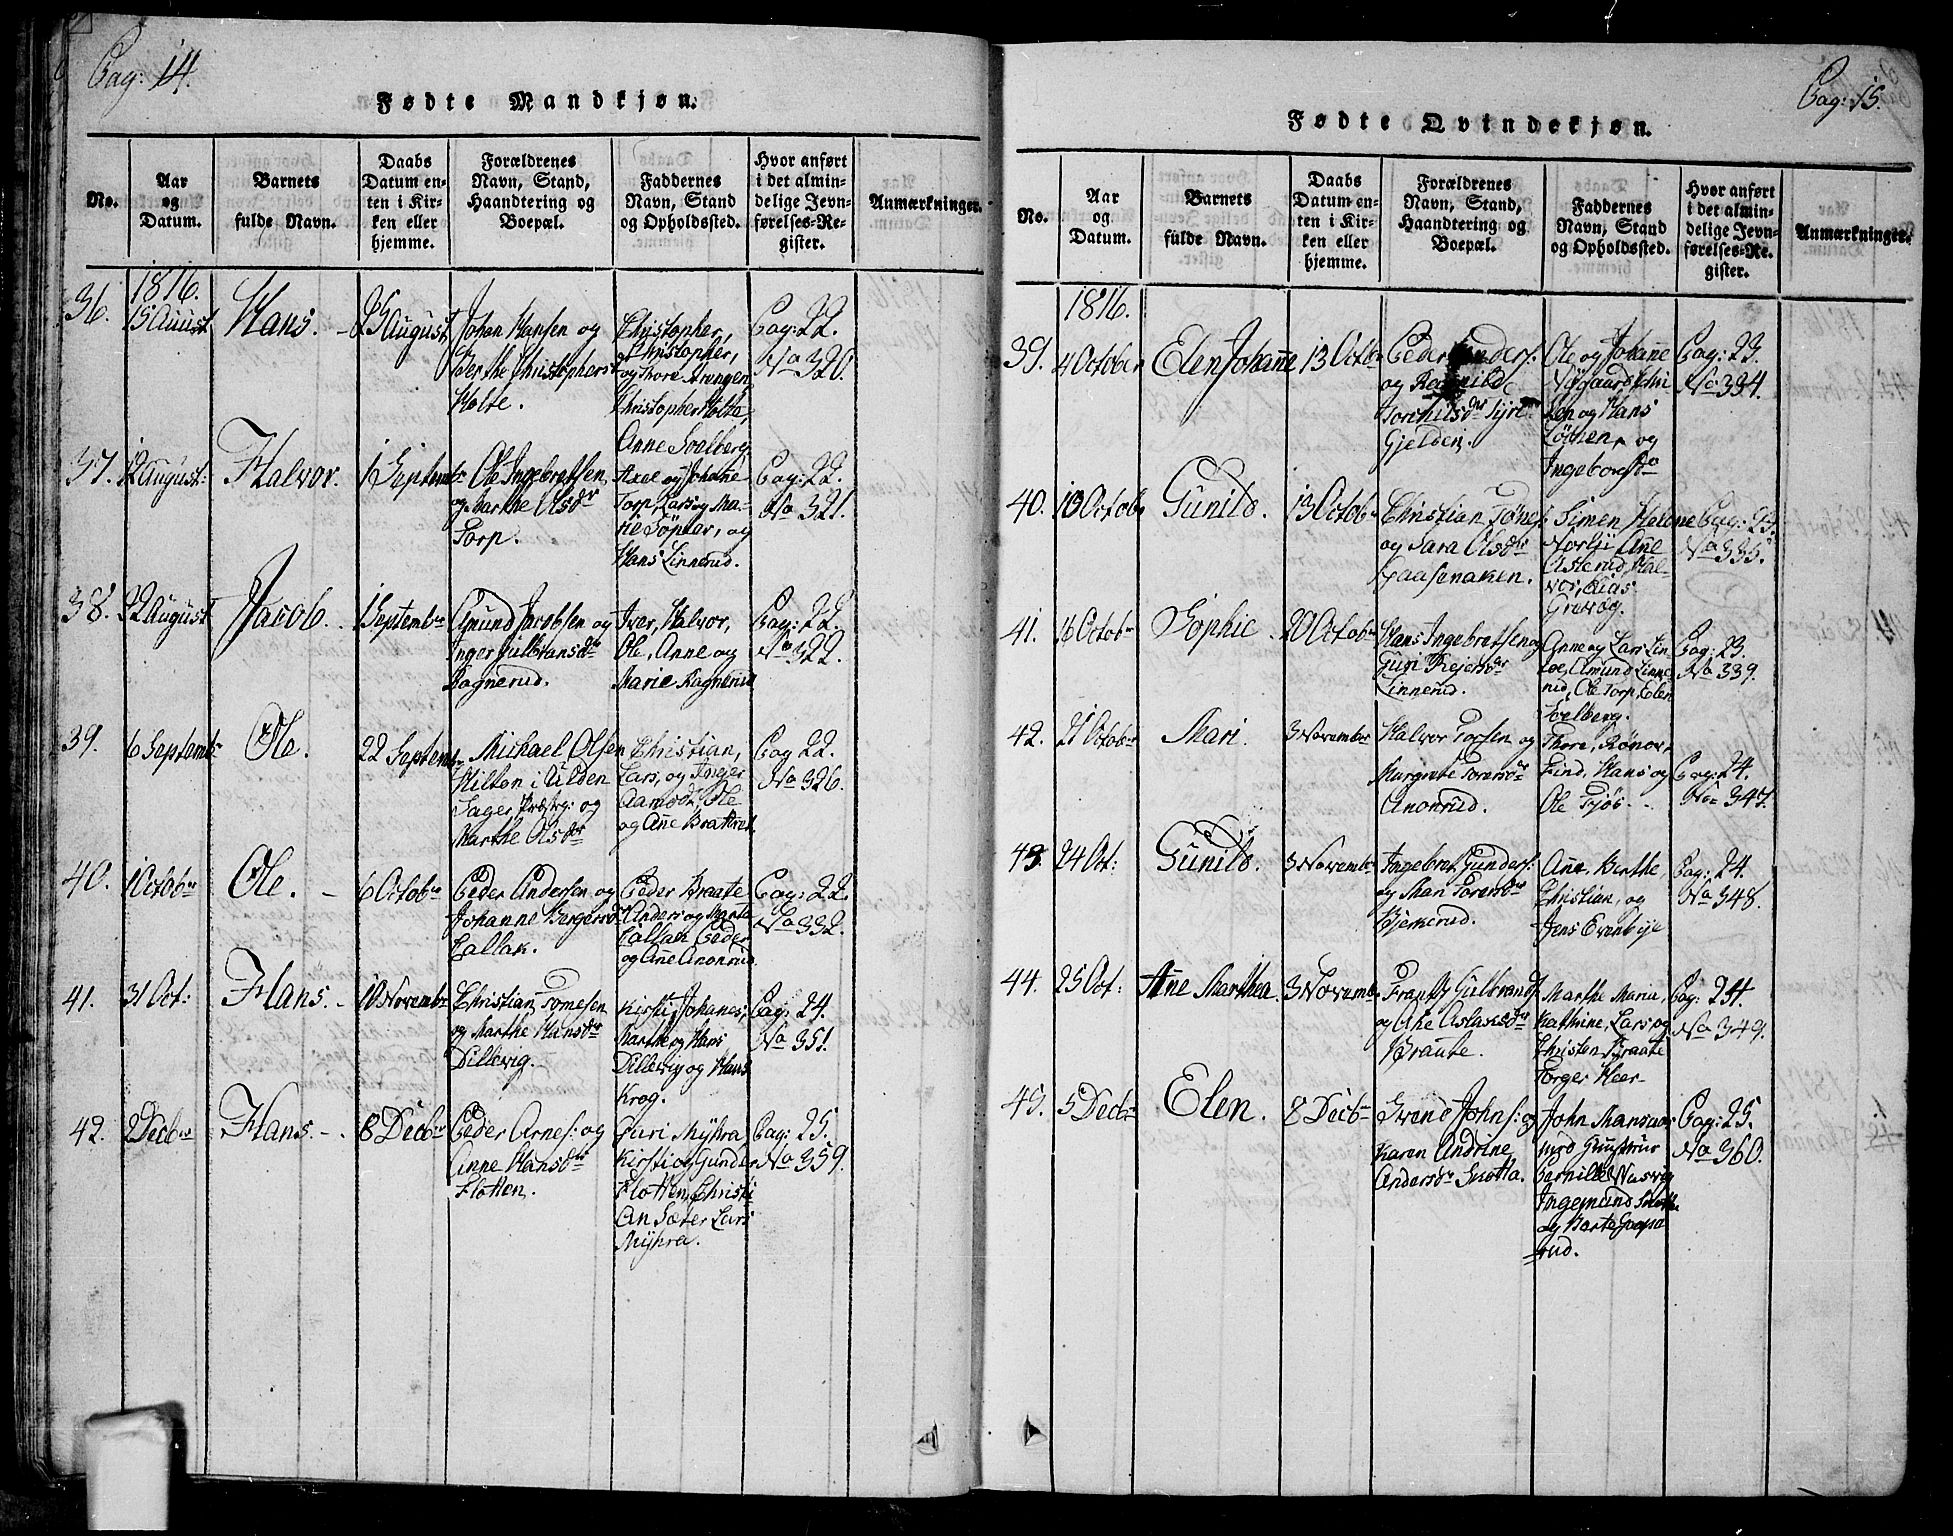 Pag: 14.
Fødte Mandkjøn.
No.
Aar
og
Datum.
Barnets
fulde Navn.
Daabs
Datum en-
ten i Kir-
ken eller
hjemme.
Forældrenes
Navn, Stand,
Haandtering og
Boepæl.
Faddernes
Navn, Stand
og Opholdssted.
Hvor anført
i det almin-
delige Jevn-
førelses-Re-
gister.
Anmærkninger.
1816.
36.
15 Auust
Hans.
25 August
Johan Hansen og
Berthe Christophersd
Holte.
Christopher,
Christopher,
og Thore Strengen
Christopher Holte,
Anne Soelberg
Pag: 22.
No 320.
37.
12 August:
Halvor.
1 Septembr
Ole Ingebretsen
og Marthe Olsdr
Torp.
Axel og Johane
Torp, Lars og Ma-
rie Söpler, og
Hans Linnerud.
Pag: 22.
No 321.
38.
22 August
Jacob.
1 Septembr
Amund Jacobsen og
Inger Gulbransdr
Ragnerud.
Iver, Halvor,
Ole, Anne og
Marie Ragnerud
Pag: 22.
No 322.
39.
6 Septembr
Ole.
22 Septembr
Michael Olsen
Hilton i Ulden
Sager Præstg: og
Marthe Olsdr
Christian,
Lars, og Inger
Aamodt, Ole
og Ane Brattvet
Pag 22.
No 326.
40.
1 Octobr
Ole.
6 Octobr
Peder Andersen og
Johanne Bergersdr
Tallak.
Peder Braate
Anders og Marte
Tallak Peder
og Ane Anonrud
Pag: 22.
No 332.
41.
31 Oct:
Hans.
10 Novembr
Christian Tomesen
og Marthe Hansdr
Dillevig.
Kirsti, Johanes,
Marthe og Hans
Dillevig og Hans
Krog.
Pag: 24.
No 351.
42.
2 Decbr
Hans.
8 Decbr
Peder Arnes: og
Anne Hansdr
Flotten.
Guri Myhra
Kirsti og Gunder
Flotten, Christi-
an Sæter Lars
Myhra.
Pag: 25.
No 359.
Pag: 15.
Fødte Qvindekjøn.
No.
Aar
og
Datum.
Barnets
fulde Navn.
Daabs
Datum en-
ten i Kir-
ken eller
hjemme.
Forældrenes
Navn, Stand,
Haandtering og
Boepæl.
Faddernes
Navn, Stand
og Opholdssted.
Hvor anført
i det almin-
delige Jevn-
førelses-Re-
gister.
Anmærkninger.
1816.
39.
4 October
Elen Johanne
13 Octbr
Peder Anders:
og Ragnild
Torchilsdr Tyri
Gjelden.
Ole og Johanne
og Hans
Löchen og
Ingeborg
Pag: 23.
No 334.
40.
10 Octobr
Gunild.
13 Octobr
Christian Tönes
og Sara Olsdr
Gaasenaken.
Simen Helene
Norbÿ Ane
Asterud, Hal-
vor, Elias
Grevog.
Pag: 23.
No 335.
41.
16 Octobr
Sophie
20 Octobr
Hans Ingebretsen og
Guri Reiersdr
Linnerud.
Anne og Lars Lin-
Amund Linne
rud, Ole Torp, Elen
Soelberg.
Pag: 23.
No 339.
42.
21 Octobr
Mari.
3 Novembr
Halvor Torsen og
Margrete Toresdr
Anonrud.
Thore, Rönou,
Find, Hans og
Ole Tjös.
Pag: 24.
No 347.
43.
24 Oct:
Gunild.
3 Novembr
Ingebret Gunders:
og Mari Toresdr
Bjerkerud.
Ane, Berthe,
Christian, og
Jens Evenbye
Pag: 24.
No 348.
44.
25 Oct:
Ane Marthea
3 Novembr
Frants Gulbrands
og Ane Aslaksdr
Braate.
Marthe Maria,
Kathrine, Lars og
Christen Braate
Torger Heer
Pag: 24.
No 349.
45.
5 Decbr
Elen.
8 Decbr
Svend Johns: og
Karen Andrine
Andersdr Snotta.
John Mansaas
Pernille Næsvog
Ingemund Snotta
og Marte Gropa
rud.
Pag: 25.
No 360.